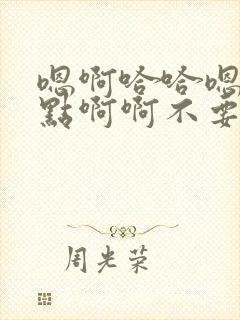 嗯啊哈哈嗯
點啊啊不要
周光荣